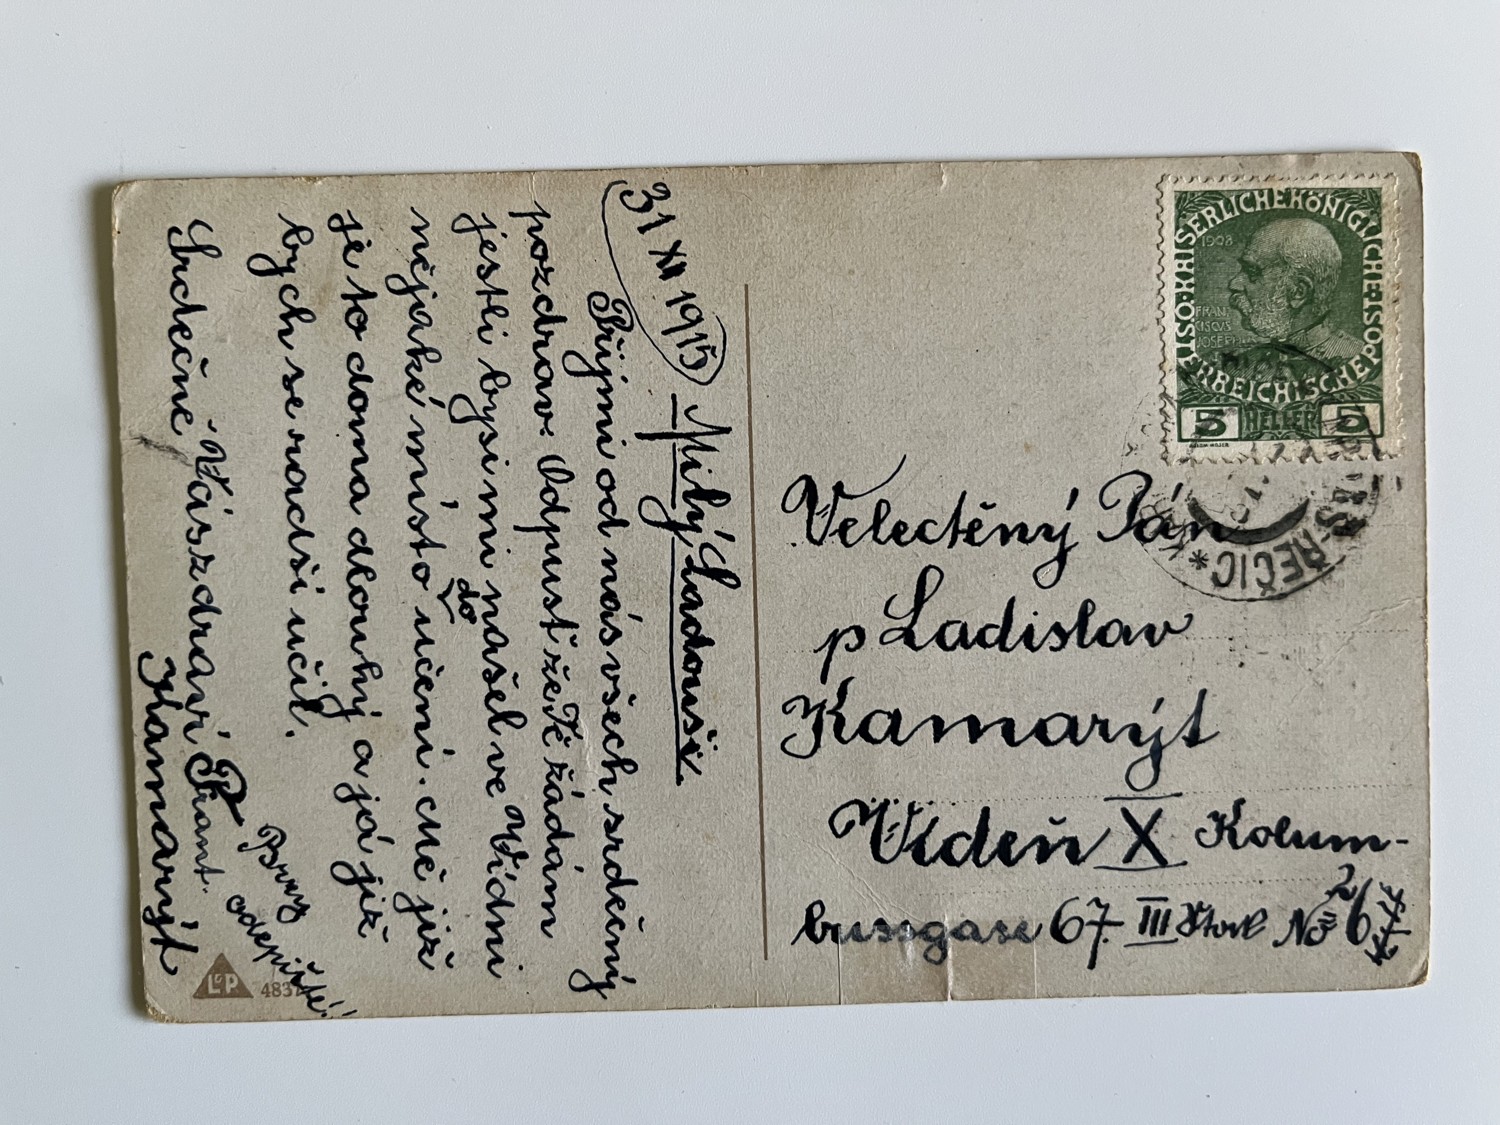 31 XII 1915
Milý Ladouši
Přijmi od nás všech srdečný
pozdrav. Odpusť že Tě žádám
jestli bysi mi našel ve Vídni
nějaké místo do učení. Mě již
je to doma dlouhý a já již
bych se radši učil.
Srdečně Vás zdraví Frant.
Kamarýt
Brzy
odepiště!
L&P
483
Velectěný Pán
p Ladislav
Kamarýt
Vídeň X Kolum-
bussgase 67. III Štok No 26
KAISERLICHE KÖNIGLICHE ÖSTERREICHISCHE POST
1908
FRAN
CISCUS
JOSEPHUS
5 HELLER 5
ŘEČIC *